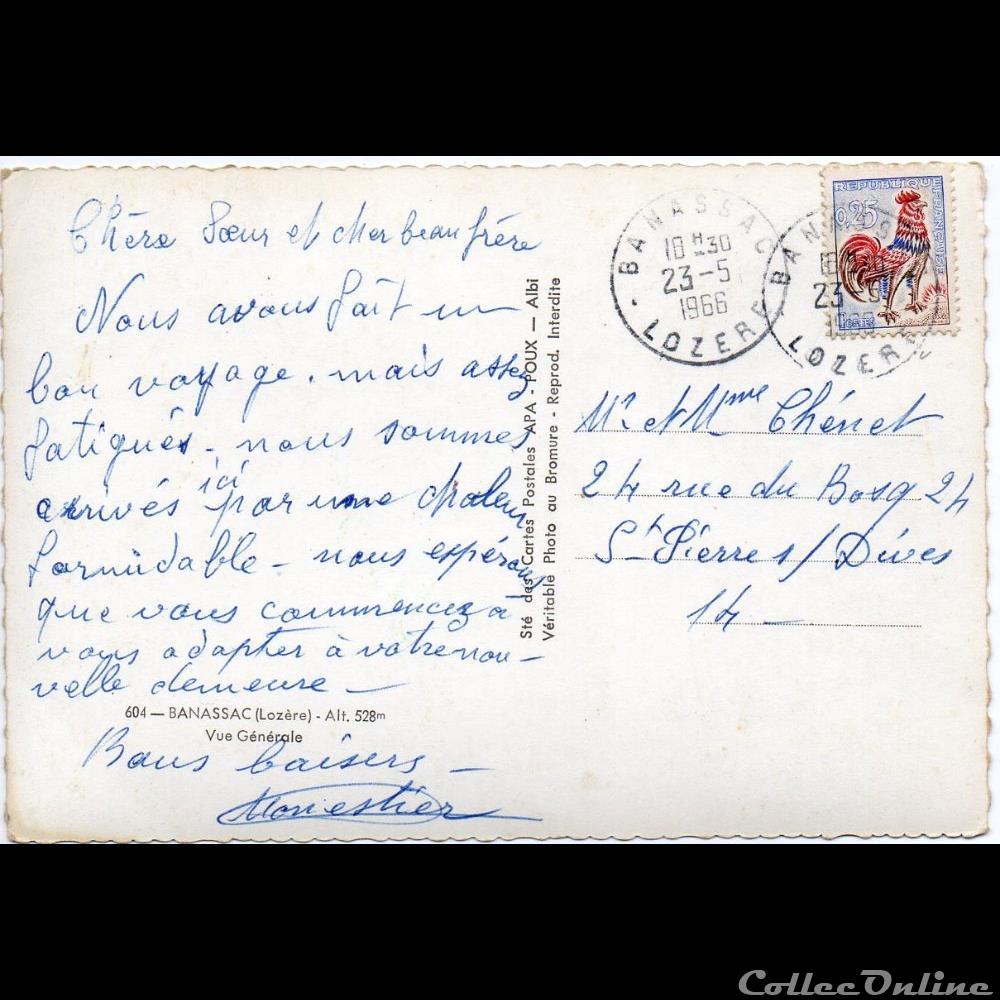 Chère Sœur et cher beau frère
Nous avons fait un
bon voyage. mais assez
fatigués - nous sommes
ici
arrivés par une chaleur
formidable - nous espérons
que vous commencez à
vous adapter à votre nou-
velle demeure -
604 — BANASSAC (Lozère) - Alt. 528m
Vue Générale
Bons baisers -
Monestier
Sté des Cartes Postales APA - POUX — Albi
Véritable Photo au Bromure - Reprod. Interdite
BANASSAC
18H30
23-5
1966
LOZERE
REPUBLIQUE FRANÇAISE
0,25
BANASSAC
23-5
LOZERE
Mr et Mme Chénet
24 rue du Bosq 24
St Pierre s/ Dives
14 -
ColleeOnline